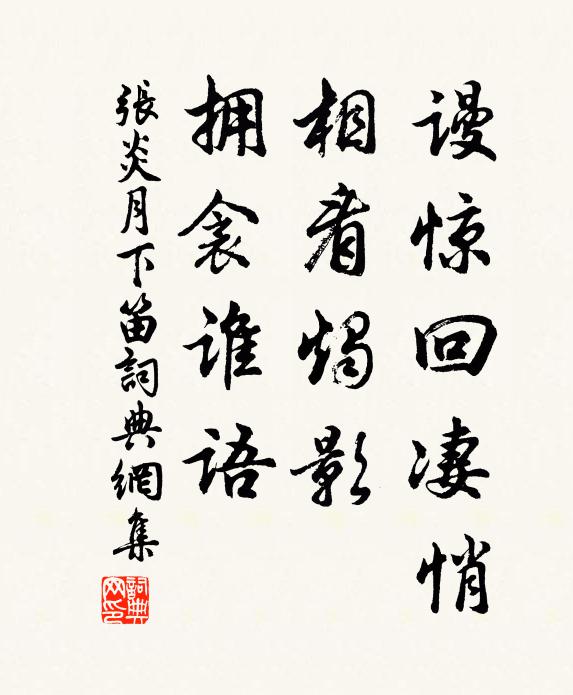 谩惊回凄悄
相看燭影
拥衾谁语
張炎月下笛詞典網集
詞典网印